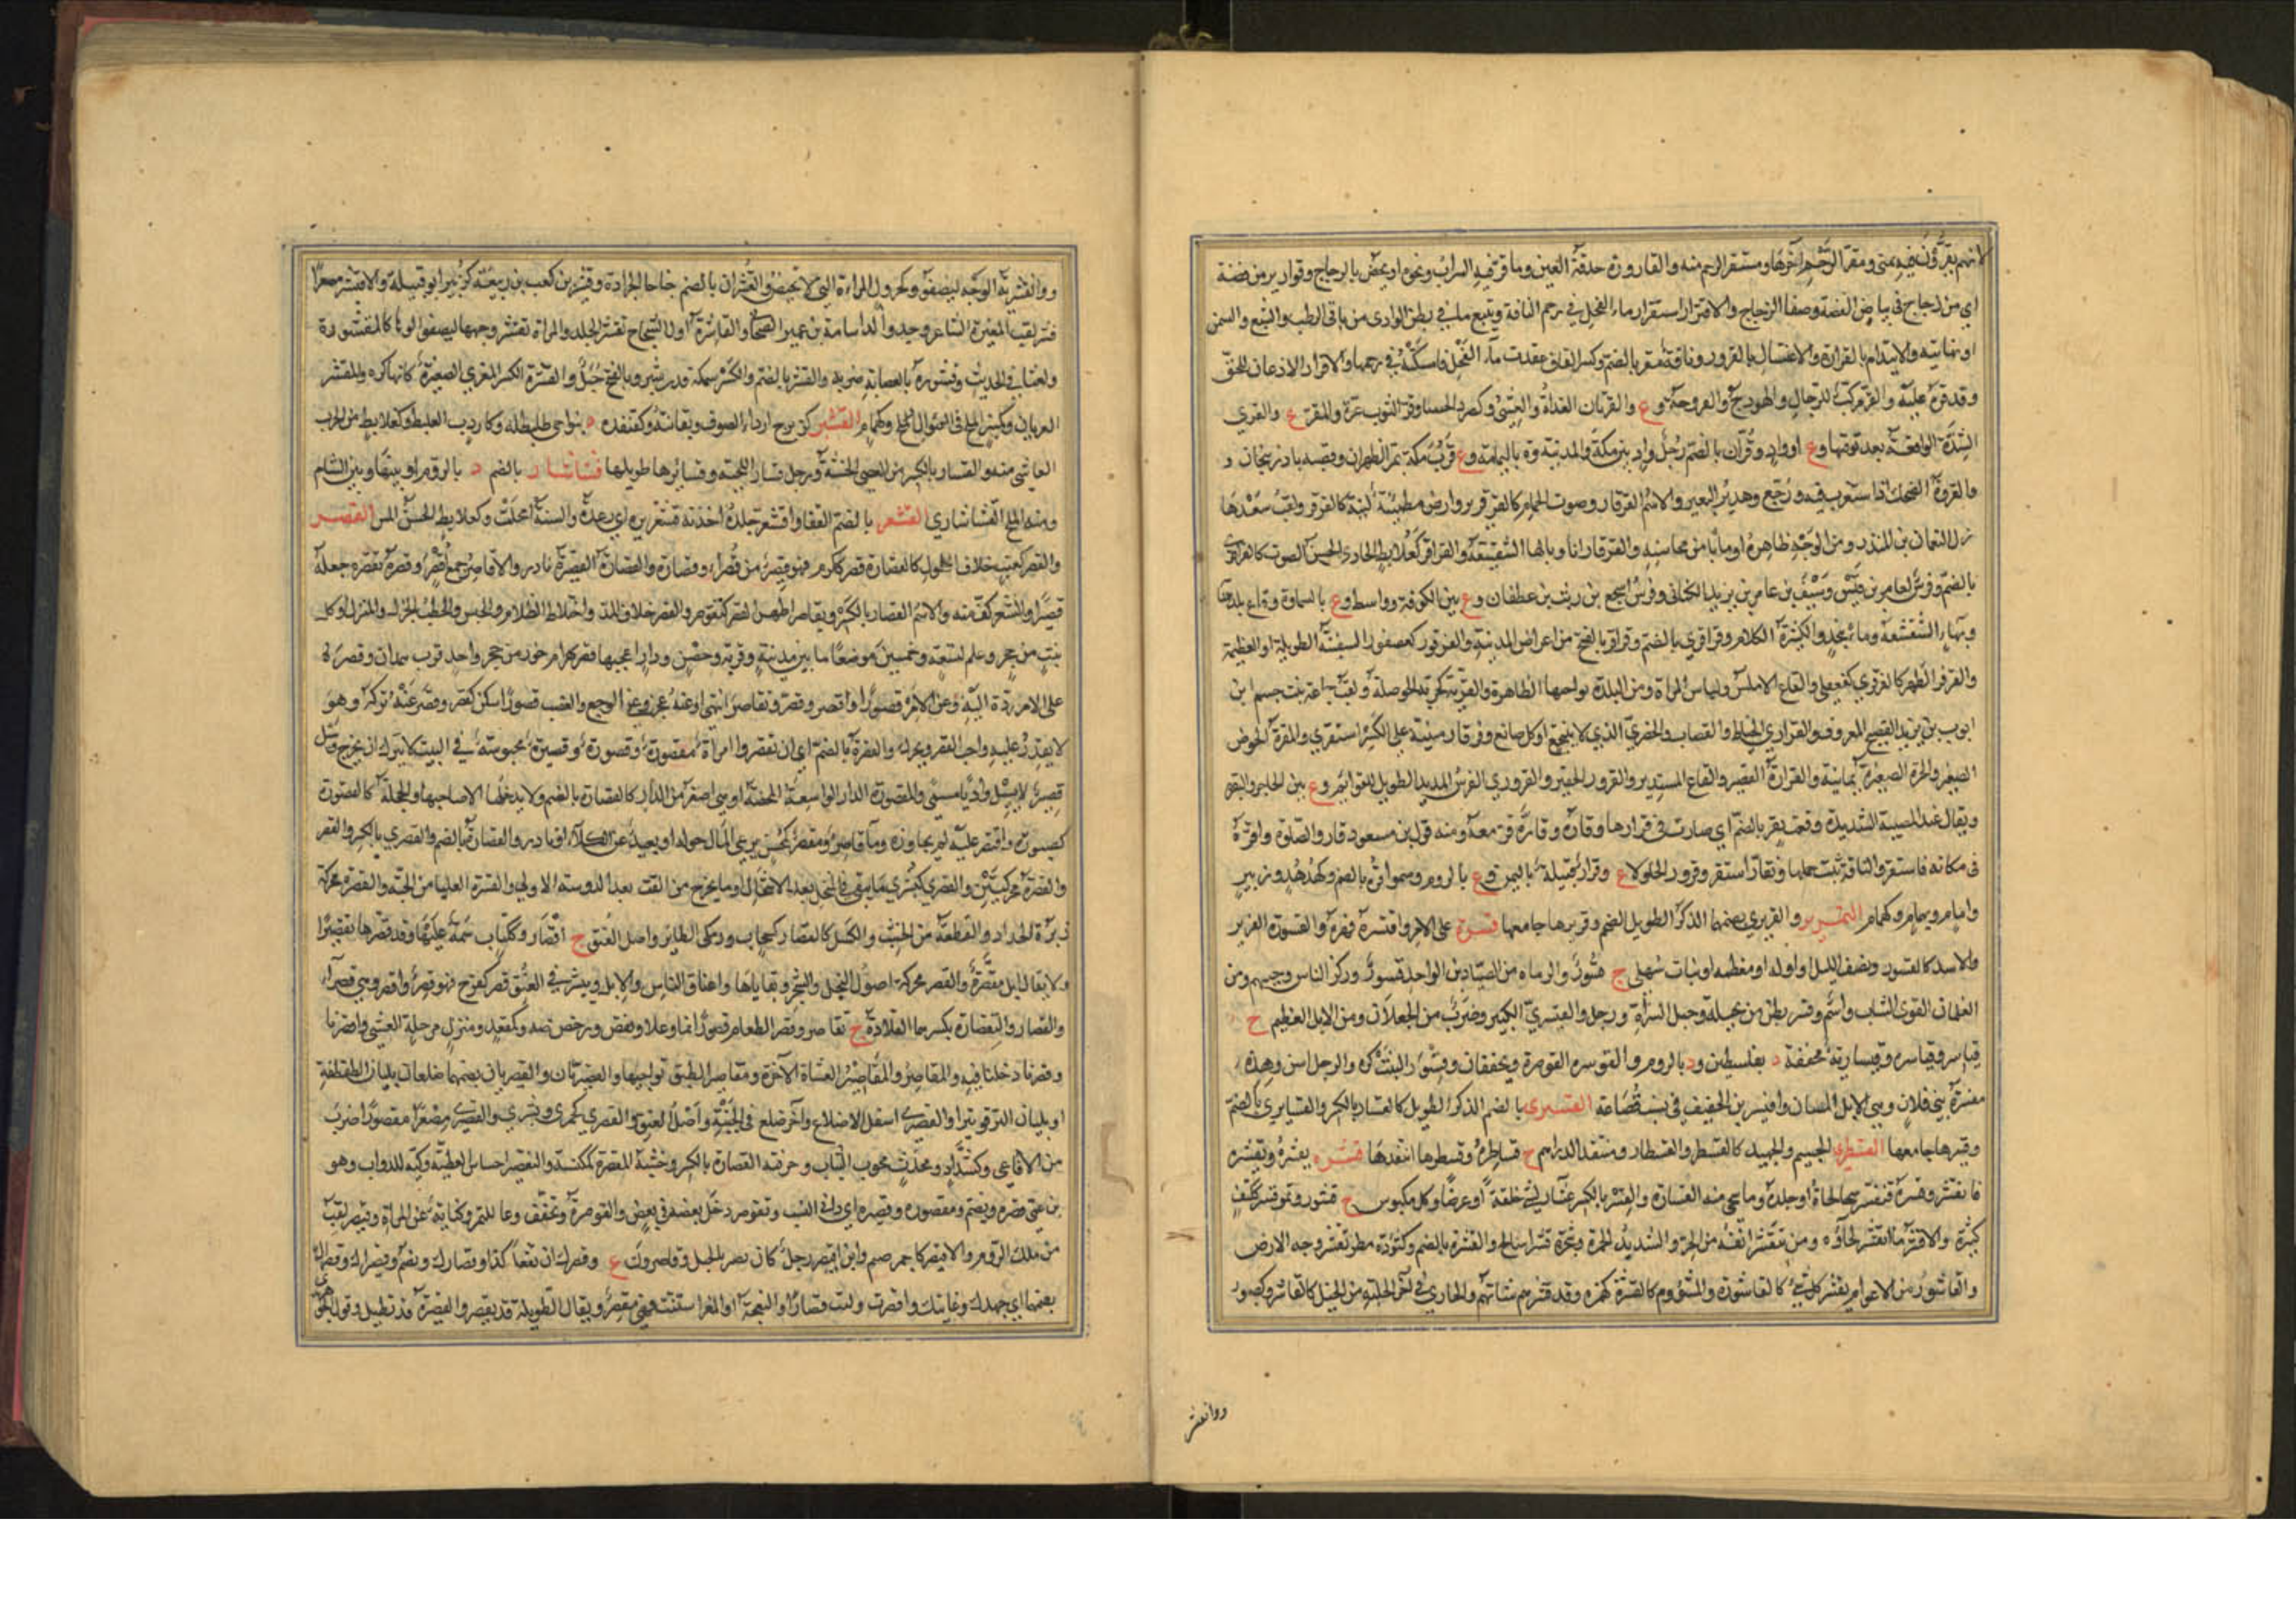 لانهم يقرون فيه بمنى ومقر الرحم آخرها ومستقر الرحم منه والقارورة حدقة العين وما قر فيه الشراب ونحوه او يخص بالزجاج وقوارير من فضة
اي من زجاج في بياض الفضة وصفاء الزجاج والاقترار استقرار ماء الفحل في رحم الناقة وتتبع ما في بطن الوادى من باقى الرطب والشبع والسمن
او نهايته والايتدام بالقرارة والاغتسال بالقرور وناقة مقر بالضم وكسر القاف عقدت ماء الفحل فامسكته في رحمها والاقرار الاذعان للحق
وقد قرره عليه والقر مركب للرجال والهودج والفروجة وع والقرتان الغداة والعشي وكصرد الحسا وقر الثوب غره والمقر ع والقري
الشدة الواقعة بعد توقيها وع او واد وقران بالضم رجل وواد بين مكة والمدينة وة باليمامة وع قرب مكة بمر الظهران وقصبة باذربيجان و
والقرقرة الضحك اذا استغرب فيه ورجع وهدير البعير والاسم القرقار وصوت الحمام كالقرقرير وارض مطمئنة لينة كالقرقر ولقب سعد هذا
زل النعمان بن المنذر ومن الوجه ظاهره او ما بدا من محاسنه والقرقار انا وبالها الشقشقة والقراقر كعلابط الحادى الحسن الصوت كالقراقرى
بالضم وفرس لعامر بن قيس وسيف بن عامر بن يزيد الكنانى وفرس اشجع بن ريث بن غطفان وع بين الكوفة وواسط وع بالسماوة وقاع
وبهاء الشقشقة وماء بنجد والكثيرة الكلام وقراقري بالضم وقراقر بالفتح من اعراض المدينة والقرقور كعصفور السفينة الطويلة او العظيمة
والقرقر الظهر كالقرقري كفعفلى والقاع الاملس ولباس المراة ومن البلدة نواحيها الظاهرة والقرية كجرية الحوصلة ولقب جماعة بنت جشم ابن
ايوب بن يزيد الفصيح المعروف والقراري الخياط والقصاب والحضري الذي لا ينتجع او كل صانع وقرقار مبنية على الكسر استقري والمقرة الحوض
الصغير والجرة الصغيرة يمانية والقرارة القصير والقاع المستدير والقرور الحقير والقروري الفرس المديد الطويل القوائم وع بين الحاجر والنقرة
ويقال عند المصيبة الشديدة وقعت بقر بالضم اي صارت في قرارها وقاره مقارة قر معه ومنه قول بن مسعود قاروا الصلوة واقره
في مكانه فاستقر والناقة ثبت حملها وتقار استقر وقرور الجلولاء ع وقرار قبيلة باليمن وع بالروم وسموا قرة بالضم وكهدهد وزبير
وامام وغمام وكهمام القسبرير والقزبري بضمهما الذكر الطويل الضخم وقزبرها جامعها قسره على الامر واقتسره قهره والقسورة العزيز
والاسد كالقسور ونصف الليل او اوله او معظمه او نبات سهلى ج قسور والرماه من الصيادين الواحد قسور وركز الناس وحسهم ومن
الغلمان القوى الشاب واسم وقسر بطن من بجيلة وجبل السراة ورجل والقيسري الكبير وضرب من الجعلان ومن الابل العظيم ج
قياسر وقياسره وقيسارية مخففة د بفلسطين ود بالروم والقوسره القوصرة ويخففان وقسور النبت كثر والرجل اسن وهذه
مقسرة بني فلان وهى الابل المسان واقيسر بن الخفيف في نسب قضاعة القسبرى بالضم الذكر الطويل كالقسبار بالكسر والقسابري بالضم
وقسبرها جامعها القسطري الجسيم والجهبذ كالقسطر والقسطار ومنتقد الدراهم ج قساطرة وقسطرها انتقدها قشره يقشره ويقشره
فانقشر وقشره فتقشر سحا لحاه او جلده وما سحى منه القشارة والقشر بالكسر غشاء الشئ خلقة او عرضا وكل ملبوس ج قشور وتمر قشر ككتف
كثيره والاقشر ما انقشر لحاؤه ومن تقشر انفه من الحر والشديد الحمرة وشجرة قشراء سالخ والقشرة بالضم وكتؤدة مطر تقشر وجه الارض
والقاشور من الاعوام يقشر كل شئ كالقاشورة والمشؤوم كالقشرة كهمزه وقد قشرهم شاتهم والجاري في آخر الحلبة من الخيل كالقاشر وكصبور
ووا تقشر
ووا تقشر به الوجه ليصفو وكجرول المراءة التى لا تحيض والقشران بالضم جناحا الجرادة وقشير بن كعب بن ربيعة كزبير ابو قبيلة والاقيشر مصغرا
قشر لقب المغيرة الشاعر وجد والد اسامة بن عمير الصحابى والقاشرة اول الشجاج تقشر الجلد والمراة تقشر وجهها ليصفو لونها كالمقشورة
ولعنتا في الحديث وقشوره بالعصا ته ضربه والقشر بالضم والكسر سمكة قدر شبر وبالفتح جبل والقشرة الكسر المغري الصغيرة كانها كره والمقشر
العريان وكمنبر الملح في السؤال الملح وكهمام القشبر كزبرج اردا الصوف ونفايته وكقنفذه ه بنواحى طليطله وكاردب الغليظ وكعلابط من الجرب
الفاشى منه والقسبار بالكسر من العصى الخشنة ورجل قسبار اللحية وقشابرها طويلها قشاشار بالضم د بالروم او بينها وبين الشام
ومنه الملح القشاشاري القشعر بالضم القثا واقشعر جلده اخذته قشعريره اي رعدة والسنة امحلت وكعلابط الخشن المس القصر
والقصر كعنب خلاف الطول كالقصارة قصر ككرم فهو قصير من قصراء وقصار وقصارة والقصارة القصيرة نادر والاقاصر جمع اقصر وقصره تقصره جعله
قصيرا والشعر كف منه والاسم القصار بالكسر ويقاصر اظهر القصر كتقوصر والقصر خلاف المد واختلاط الظلام والحبس والحطب الجزل والمنزل وكل
بيت من حجر وعلم لسبعة وخمسين موضعا ما بين مدينة وقرية وحصن ودار اعجبها قصر بهرام جور من حجر واحد قرب همدان وقصره
على الامر رده اليه وعن الامر قصورا واقصر وقصر وتقاصر انتهى او عنه عجز وعنى الوجع والغضب قصورا سكن كقصر وقصر عنه تركه وهو
لا يقدر عليه واحب القصر ويحرك والقصرة بالضم اي ان تقصر وامراة مقصورة وقصورة وقصيرة محبوسة في البيت لا تترك ان تخرج وسيل
قصير لا يسيل واديا مسمى والمقصورة الدار الواسعة المحصنة او هى اصغر من الدار كالقصارة بالضم ولا يدخلها الا صاحبها والحجلة كالقصورة
كصبورة واقتصر عليه لم يجاوزه وماء قاصر ومقصر كمحسن يرعى المال حوله او بعيد عن الكلاء او بارد والقصارة بالضم والقصري بالكسر والقصر
والقصرة محركتين والقصري كبشري ما يبقى في المنخل بعد الانتخال او ما يخرج من القت بعد الدوسة الاولى والقشرة العليا من الحبة والقصرة محركة
زبرة الحداد والقطعة من الخشب والكسل كالقصار كسحاب وزمكى الطاير واصل العنق ج اقصار وككتاب سمة عليها وقد قصرها تقصيرا
ولا يقال ابل مقصرة والقصر محركة اصول النخل والشجر وبقاياها واعناق الناس والابل ويبس في العنق قصر كفرح فهو قصر واقصر وهى قصراء
والقصار والتقصارة بكسرهما القلادة ج تقاصر وقصر الطعام قصورا نما وغلا ونقص ورخص ضد وكمقعد ومنزل مرحلة العشى واقصرنا
وقصرنا دخلنا فيه والمقاصر والمقاصير العشاة الآخرة ومقاصر الطبق نواحيها والقصريان والقصيريان بضمهما ضلعان يليان الطفطفة
او يليان الترقوتين او القصيرى اسفل الاضلاع وآخر ضلع في الجنب واصل العنق والقصرى كجمزى وبشري والقصيرى مصغرا مقصورا ضرب
من الافاعي وكشداد ومحدث محور الثياب وحرفته القصارة بالكسر وخشبة المقصرة كمكنسة والتقصير اخساس العطية وكية للدواب وهو
بن عمى قصره ويضم ومقصوره وقصيره اي داني النسب وتقوصر دخل بعضه في بعض والقوصرة وتخفف وعا للتمر وكناية عن المراة وقيصر لقب
من ملك الروم والاقيصر كاحيمر صنم وابن اقيصر رجل كان بصيرا بالخيل وقاصرون ع وقصرك ان تفعل كذا وقصارك ويضم وقصيراك وقصاراك
بضمهما اي جهدك وغايتك واقصرت ولدت قصارا والنعجة او المعز اسنت فهى مقصر ويقال الطويلة قد تقصر والقصيرة قد تطيل وقوله